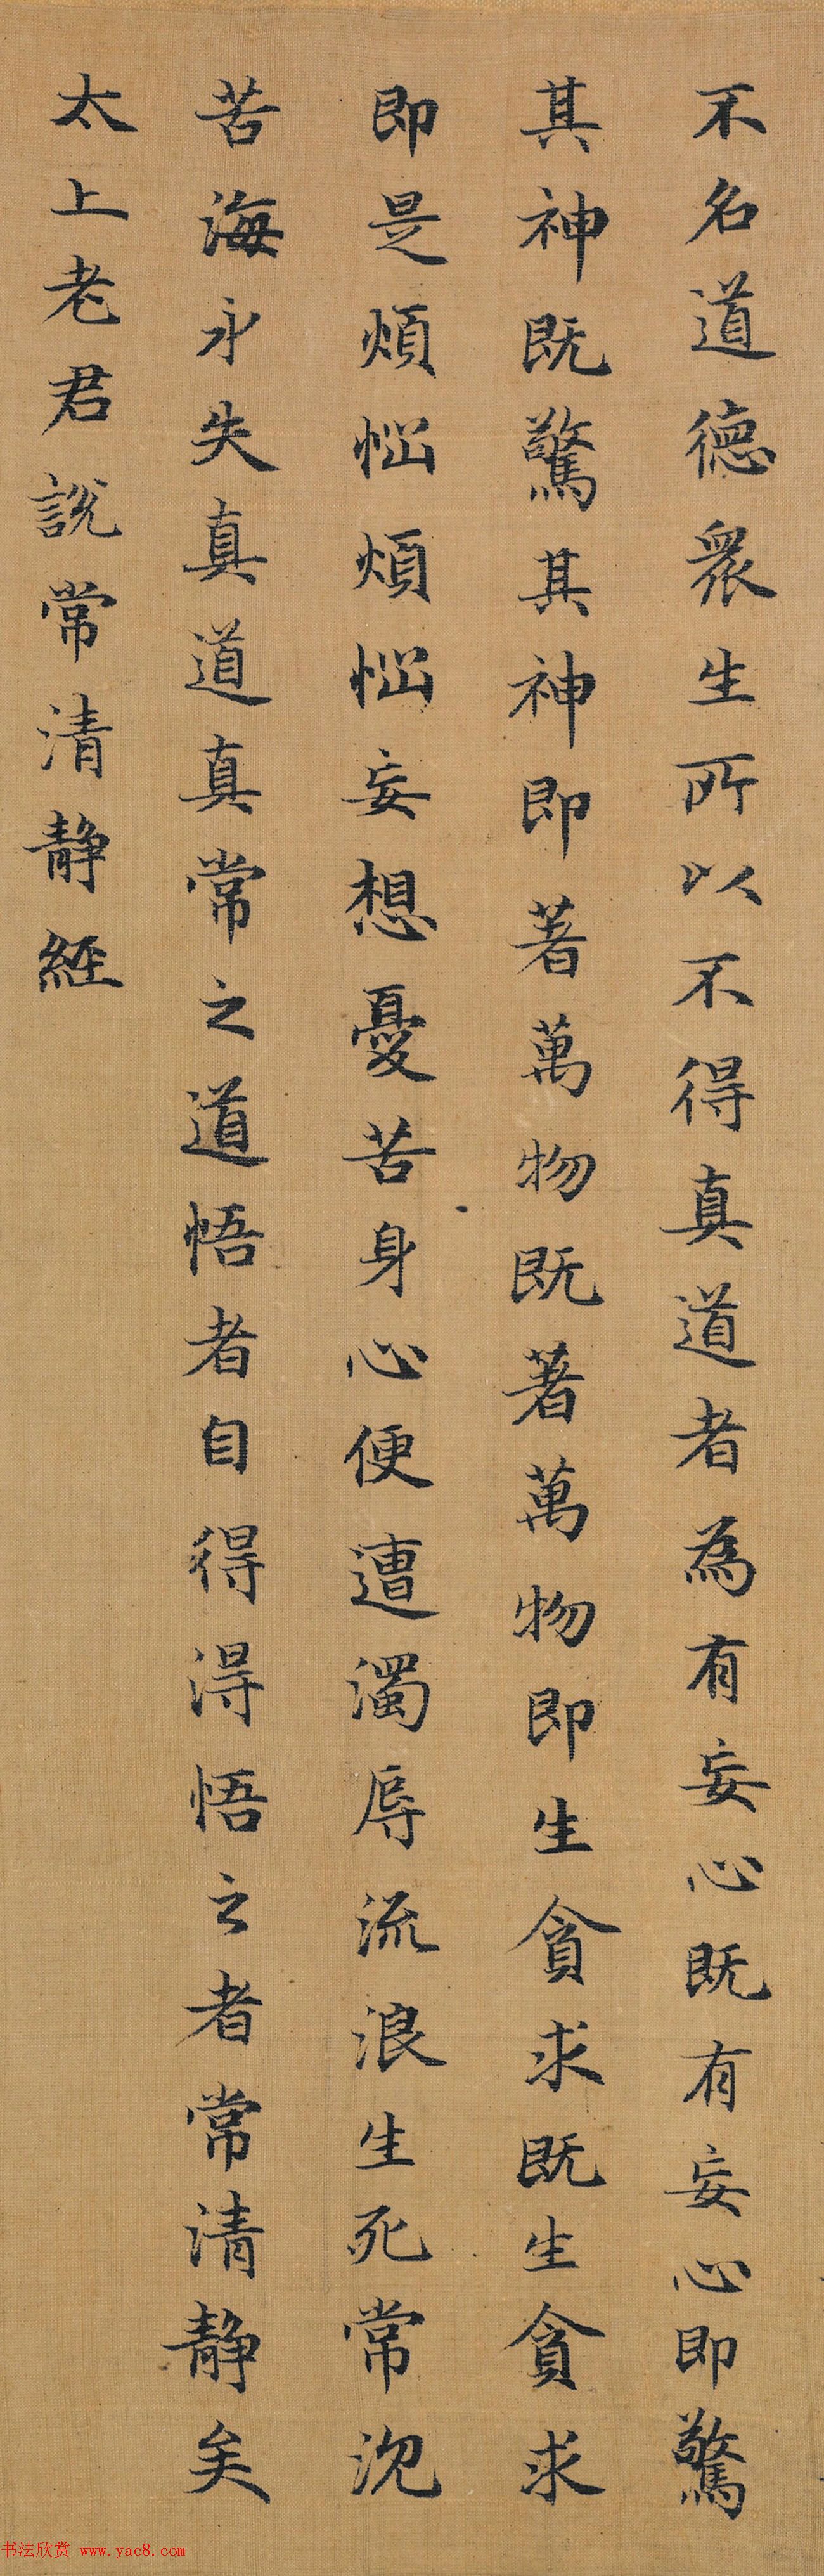 不名道德衆生所以不得真道者為有妄心既有妄心即驚
其神既驚其神即著萬物既著萬物即生貪求既生貪求
即是煩惱煩惱妄想憂苦身心便遭濁辱流浪生死常沉
苦海永失真道真常之道悟者自得得悟之者常清靜矣
太上老君說常清靜經
书法欣赏 www.yac8.com